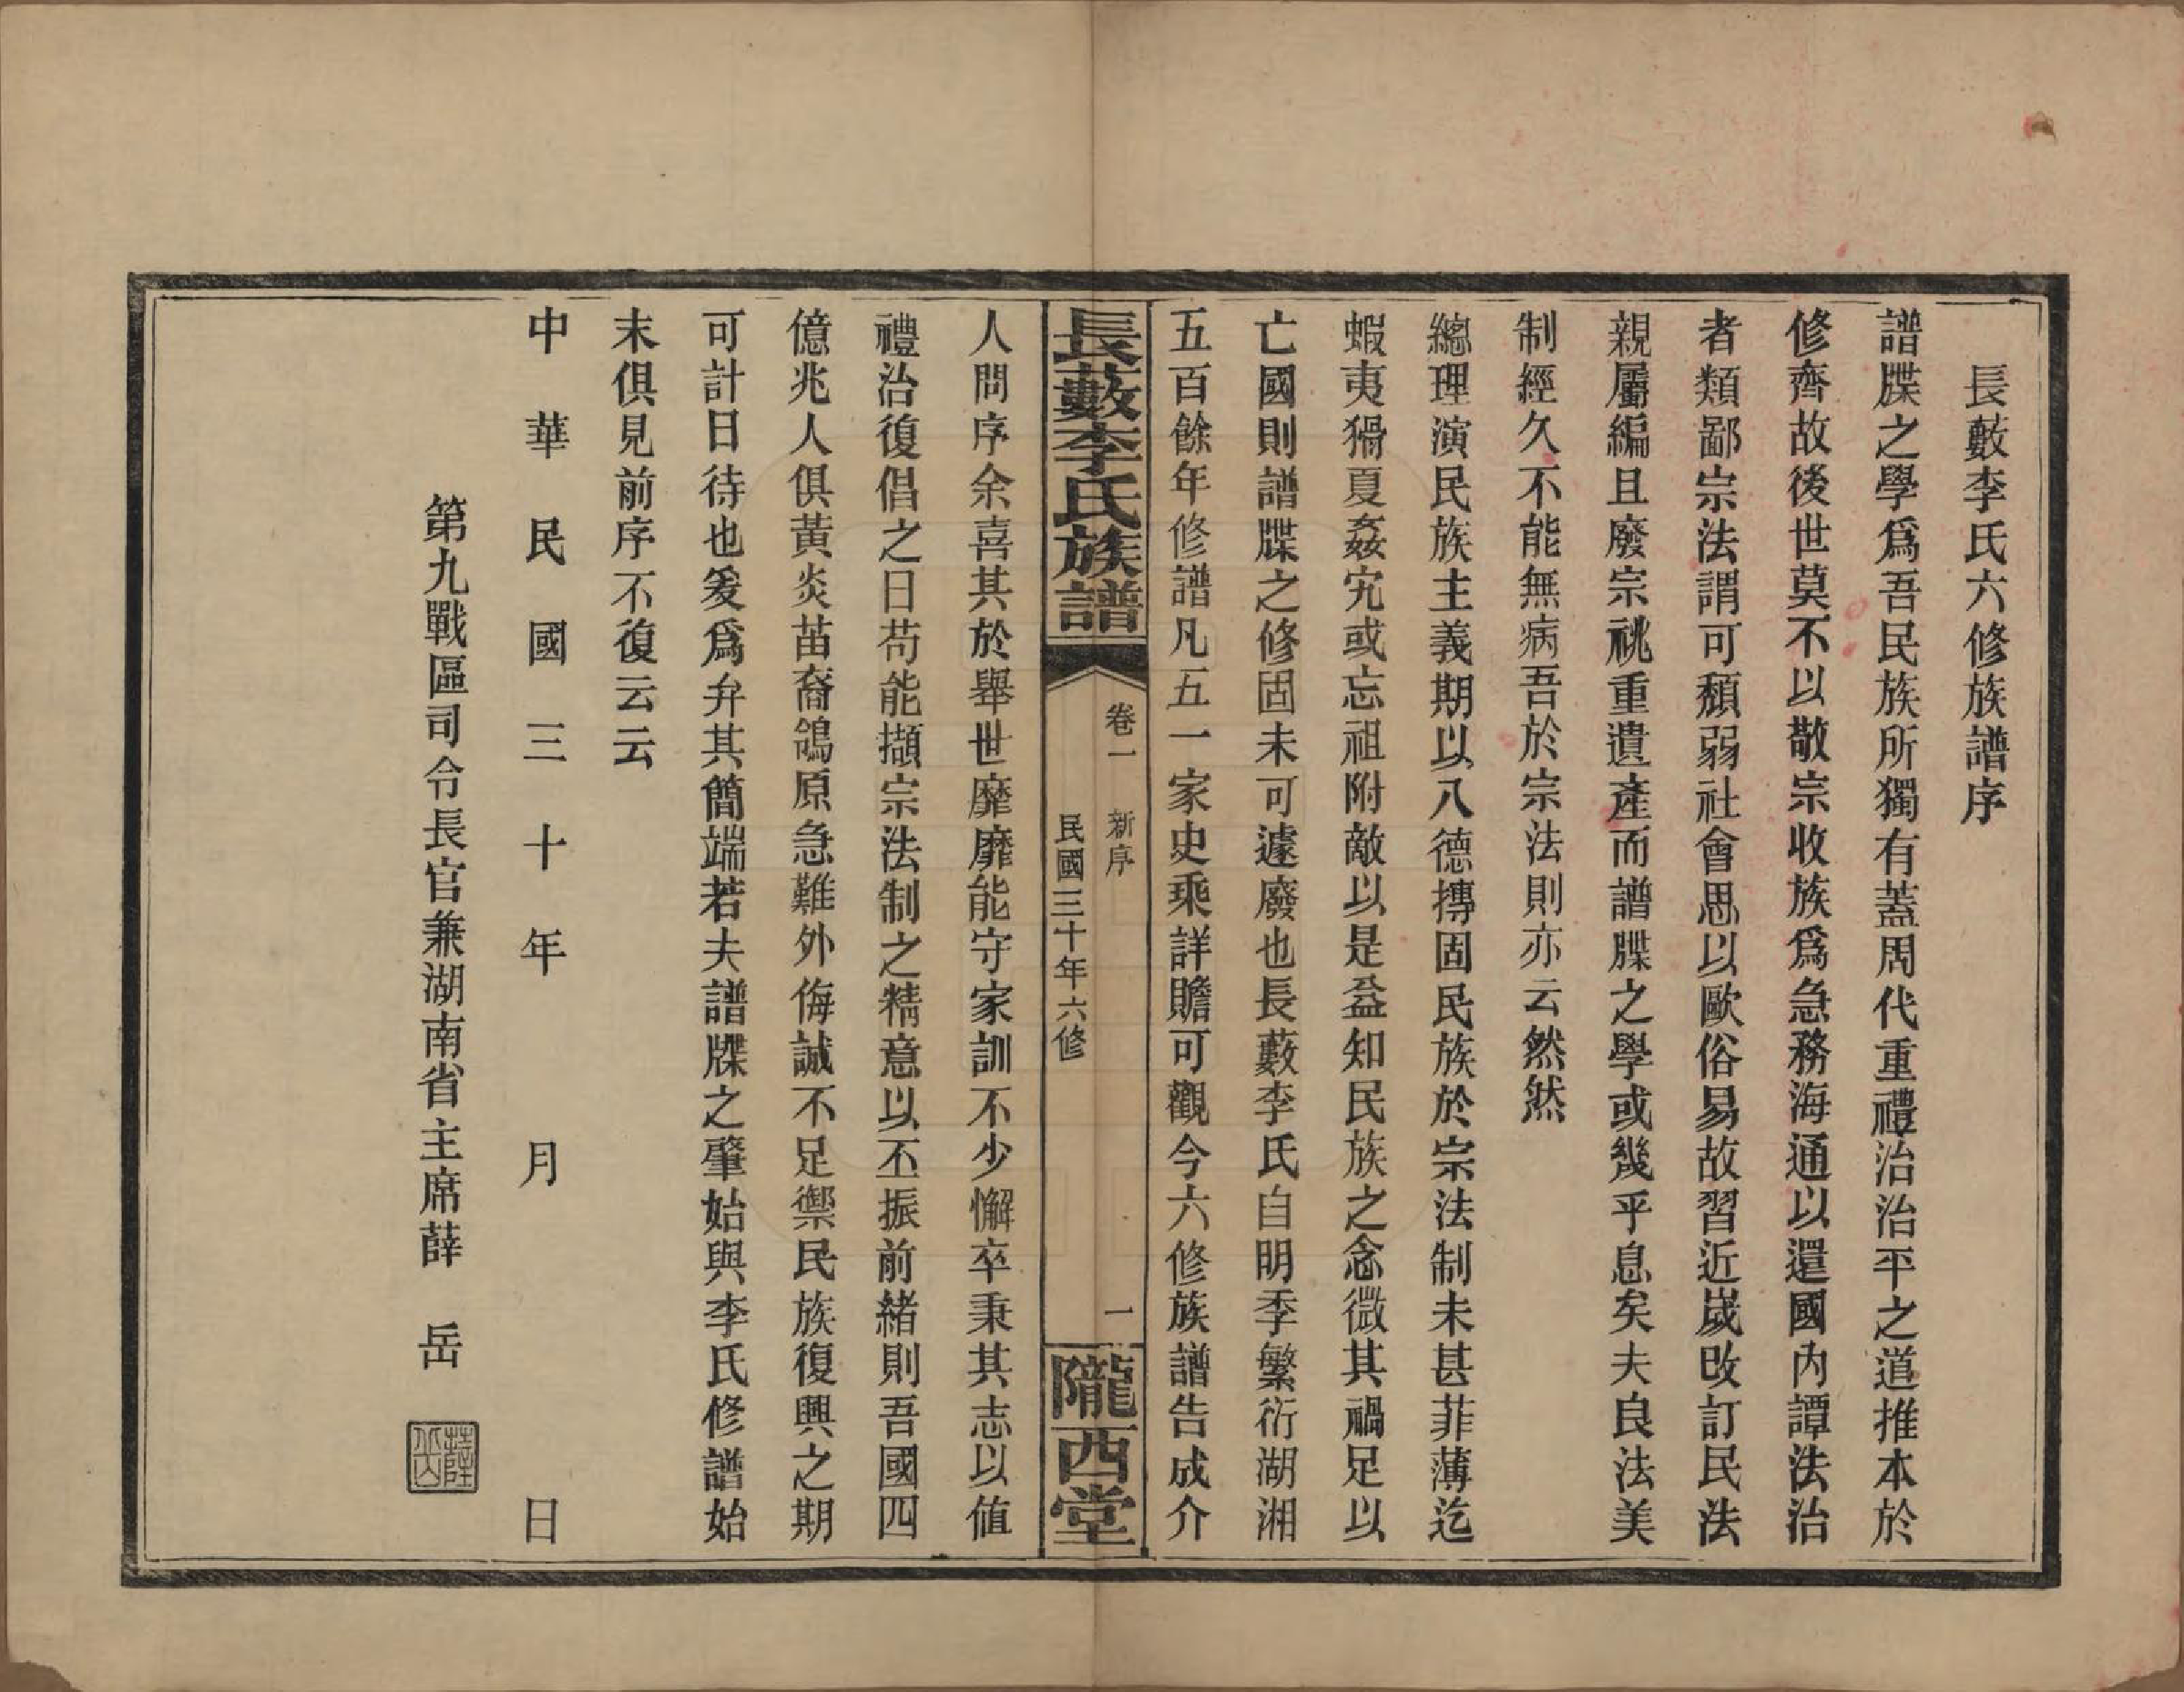 長藪李氏六修族譜序
譜牒之學爲吾民族所獨有蓋周代重禮治治平之道推本於
修齊故後世莫不以敬宗收族爲急務海通以還國內譚法治
者類鄙宗法謂可頽弱社會思以歐俗易故習近嵗改訂民法
親屬編且廢宗祧重遺產而譜牒之學或幾乎息矣夫良法美
制經久不能無病吾於宗法則亦云然然
總理演民族主義期以八德摶固民族於宗法制未甚菲薄迄
蝦夷猾夏姦宄或忘祖附敵以是益知民族之念微其禍足以
亡國則譜牒之修固未可遽廢也長藪李氏自明季繁衍湖湘
五百餘年修譜凡五一家史乘詳贍可觀今六修族譜告成介
長藪李氏族譜
卷一 新序
民國三十年六修
一
隴西堂
人問序余喜其於舉世靡靡能守家訓不少懈卒秉其志以值
禮治復倡之日苟能擷宗法制之精意以丕振前緒則吾國四
億兆人俱黃炎苗裔鴒原急難外侮誠不足禦民族復興之期
可計日待也爰爲弁其簡端若夫譜牒之肇始與李氏修譜始
末俱見前序不復云云
中華民國三十年 月 日
第九戰區司令長官兼湖南省主席薛 岳
薛岳